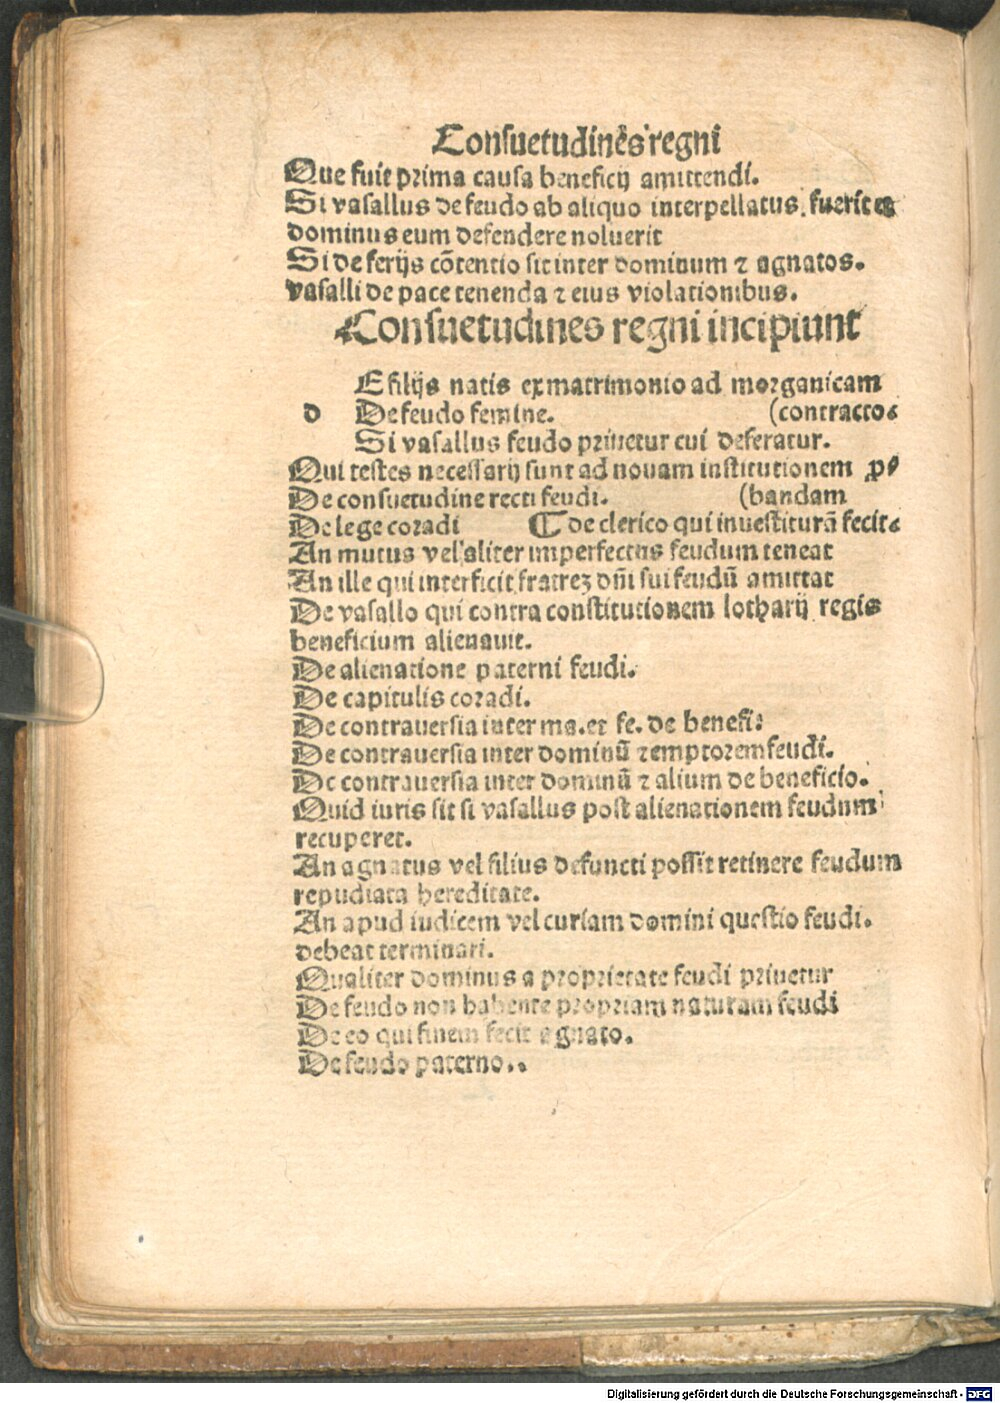 Consuetudines regni
Que fuit prima causa beneficij amittendi.
Si vasallus de feudo ab aliquo interpellatus fuerit et
dominus eum defendere noluerit
Si de ferijs cõtentio sit inter dominum ⁊ agnatos.
vasalli de pace tenenda ⁊ eius violationibus.
Consuetudines regni incipiunt
E filijs natis ex matrimonio ad morganicam
d De feudo femine. (contracto.
Si vasallus feudo priuetur cui deferatur.
Qui testes necessarij sunt ad nouam institutionem ꝓ
De consuetudine recti feudi. (bandam
De lege coradi ¶ de clerico qui inuestiturã fecit.
An mutus vel aliter imperfectus feudum teneat
An ille qui interficit fratreꝫ dñi sui feudũ amittat
De vasallo qui contra constitutionem lotharij regis
beneficium alienauit.
De alienatione paterni feudi.
De capitulis coradi.
De contrauersia inter ma. et fe. de benefi:
De contrauersia inter dominũ ⁊ emptorem feudi.
De contrauersia inter dominũ ⁊ alium de beneficio.
Quid iuris sit si vasallus post alienationem feudum
recuperet.
An agnatus vel filius defuncti possit retinere feudum
repudiata hereditate.
An apud iudicem vel curiam domini questio feudi.
debeat terminari.
Qualiter dominus a proprietate feudi priuetur
De feudo non habente propriam naturam feudi
De eo qui finem fecit agnato.
De feudo paterno..
Digitalisierung gefördert durch die Deutsche Forschungsgemeinschaft - DFG